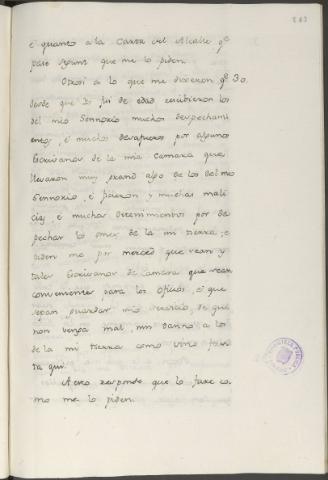 é quanto a la Carta del Alcalle q̃
paso segunt que me lo piden.
Otrosi a lo que me dixeron q̃. 30.
desde que Yo fui de edad recibieron los
del mio Sennorio muchos despechami
entos, é muchos desafueros por algunos
Escrivanos de la mia Camara que
llevaron muy grand algo de los del mio
Sennorio, é ficieron y muchas mali
cias, é muchos detenimientos por de
pechar los omes de la mi tierra, é
piden me por merced que vean y
tales Escrivanos de Camara que sean
convenientes para los oficios, é que
sepan guardar mio servicio, de que
non venga mal, nin danno a los
de la mi tierra como vino fas
ta qui.
A esto respondo que lo faré co
mo me lo piden.